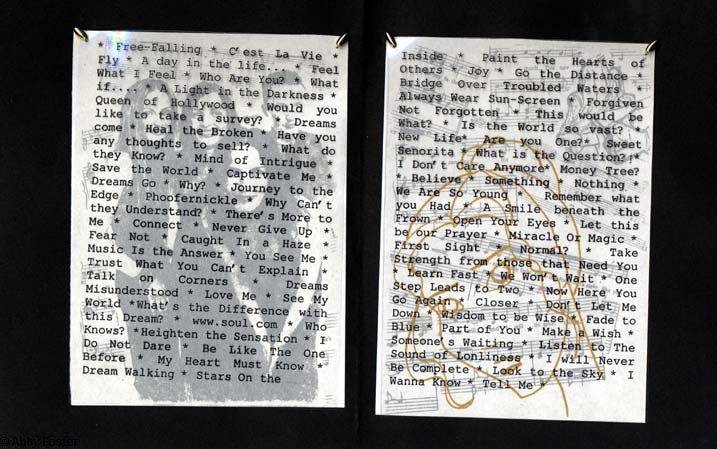 * Free-Falling * C'est La Vie *
Fly * A day in the life... * Feel
What I Feel * Who Are You? * What
if... * A Light in the Darkness *
Queen of Hollywood * Would you
like to take a survey? * Dreams
come * Heal the Broken * Have you
any thoughts to sell? * What do
they Know? * Mind of Intrigue *
Save the World * Captivate Me *
Dreams Go * Why? * Journey to the
Edge * Phoofernickle * Why Can't
they Understand? * There's More to
Me * Connect * Never Give Up *
Fear Not * Caught In * Haze *
Music Is the Answer * You See Me *
Trust What You Can't Explain *
Talk on Corners * Dreams
Misunderstood * Love Me * See My
World *What's the Difference with
this Dream? * www.soul.com * Who
Knows? *Heighten the Sensation * I
Do Not Dare * Be Like The One
Before * My Heart Must Know *
Dream Walking * Stars On the
Inside * Paint the Hearts of
Others * Joy * Go the Distance *
Bridge Over Troubled Waters *
Always Wear Sun-Screen * Forgiven
Not Forgotten * This would be
What? * Is the World so vast? *
New Life* Are you One?* Sweet
Senorita * What is the Question? *
I Don't Care Anymore* Money Tree?
* Believe * Something * Nothing *
We Are So Young * Remember what
you Had * A Smile beneath the
Frown * Open Your Eyes * Let this
be our Prayer * Miracle Or Magic *
First Sight * Normal? * Take
Strength from those that Need You
* Learn Fast * We Won't Wait * One
Step Leads to Two * Now Here You
Go Again * Closer * Don't Let Me
Down * Wisdom to be Wise * Fade to
Blue * Part of You * Make a Wish *
Someone's Waiting * Listen to The
Sound of Lonliness * will Never
Be Complete * Look to the Sky * I
Wanna Know * Tell Me *